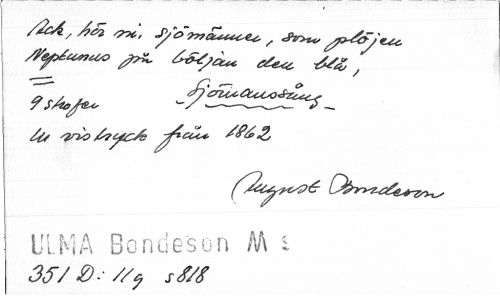 Ack, hör ni, sjömänner, som plöjen
Neptunus på böljan den blå,
9 strofer Sjömanssång
Ur vistryck från 1862
August Bondeson
ULMA Bondeson M s
351 D: 11g s 818